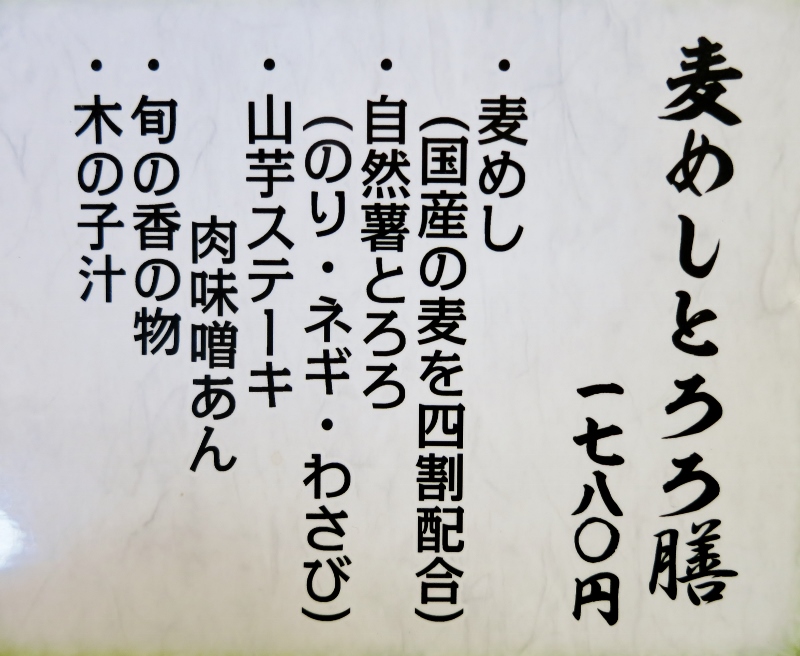 麦めしとろろ膳
一七八〇円
・麦めし
(国産の麦を四割配合)
・自然薯とろろ
(のり・ネギ・わさび)
・山芋ステーキ
肉味噌あん
・旬の香の物
・木の子汁